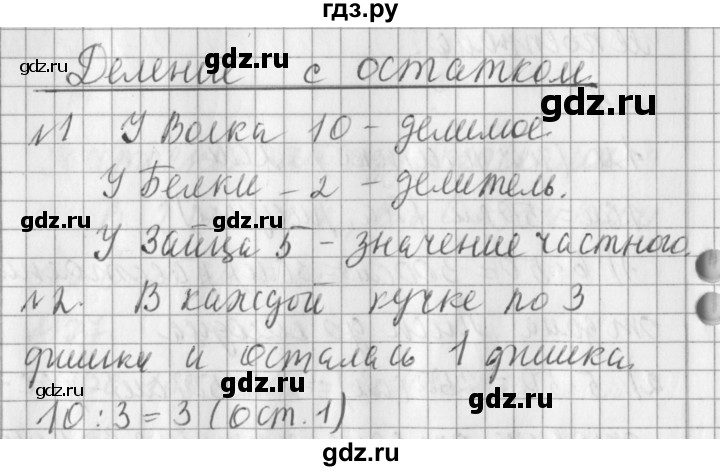 гдз.ру
Деление с остатком
№1 У Волка 10 - делимое.
У Белки - 2 - делитель.
У Зайца 5 - значение частного.
№2. В каждой кучке по 3
фишки и осталась 1 фишка.
10 : 3 = 3 (ост. 1)
gdz.ru
gdz.ru
gdz.ru
gdz.ru
gdz.ru
gdz.ru
gdz.ru
gdz.ru
gdz.ru
gdz.ru
gdz.ru
gdz.ru
gdz.ru